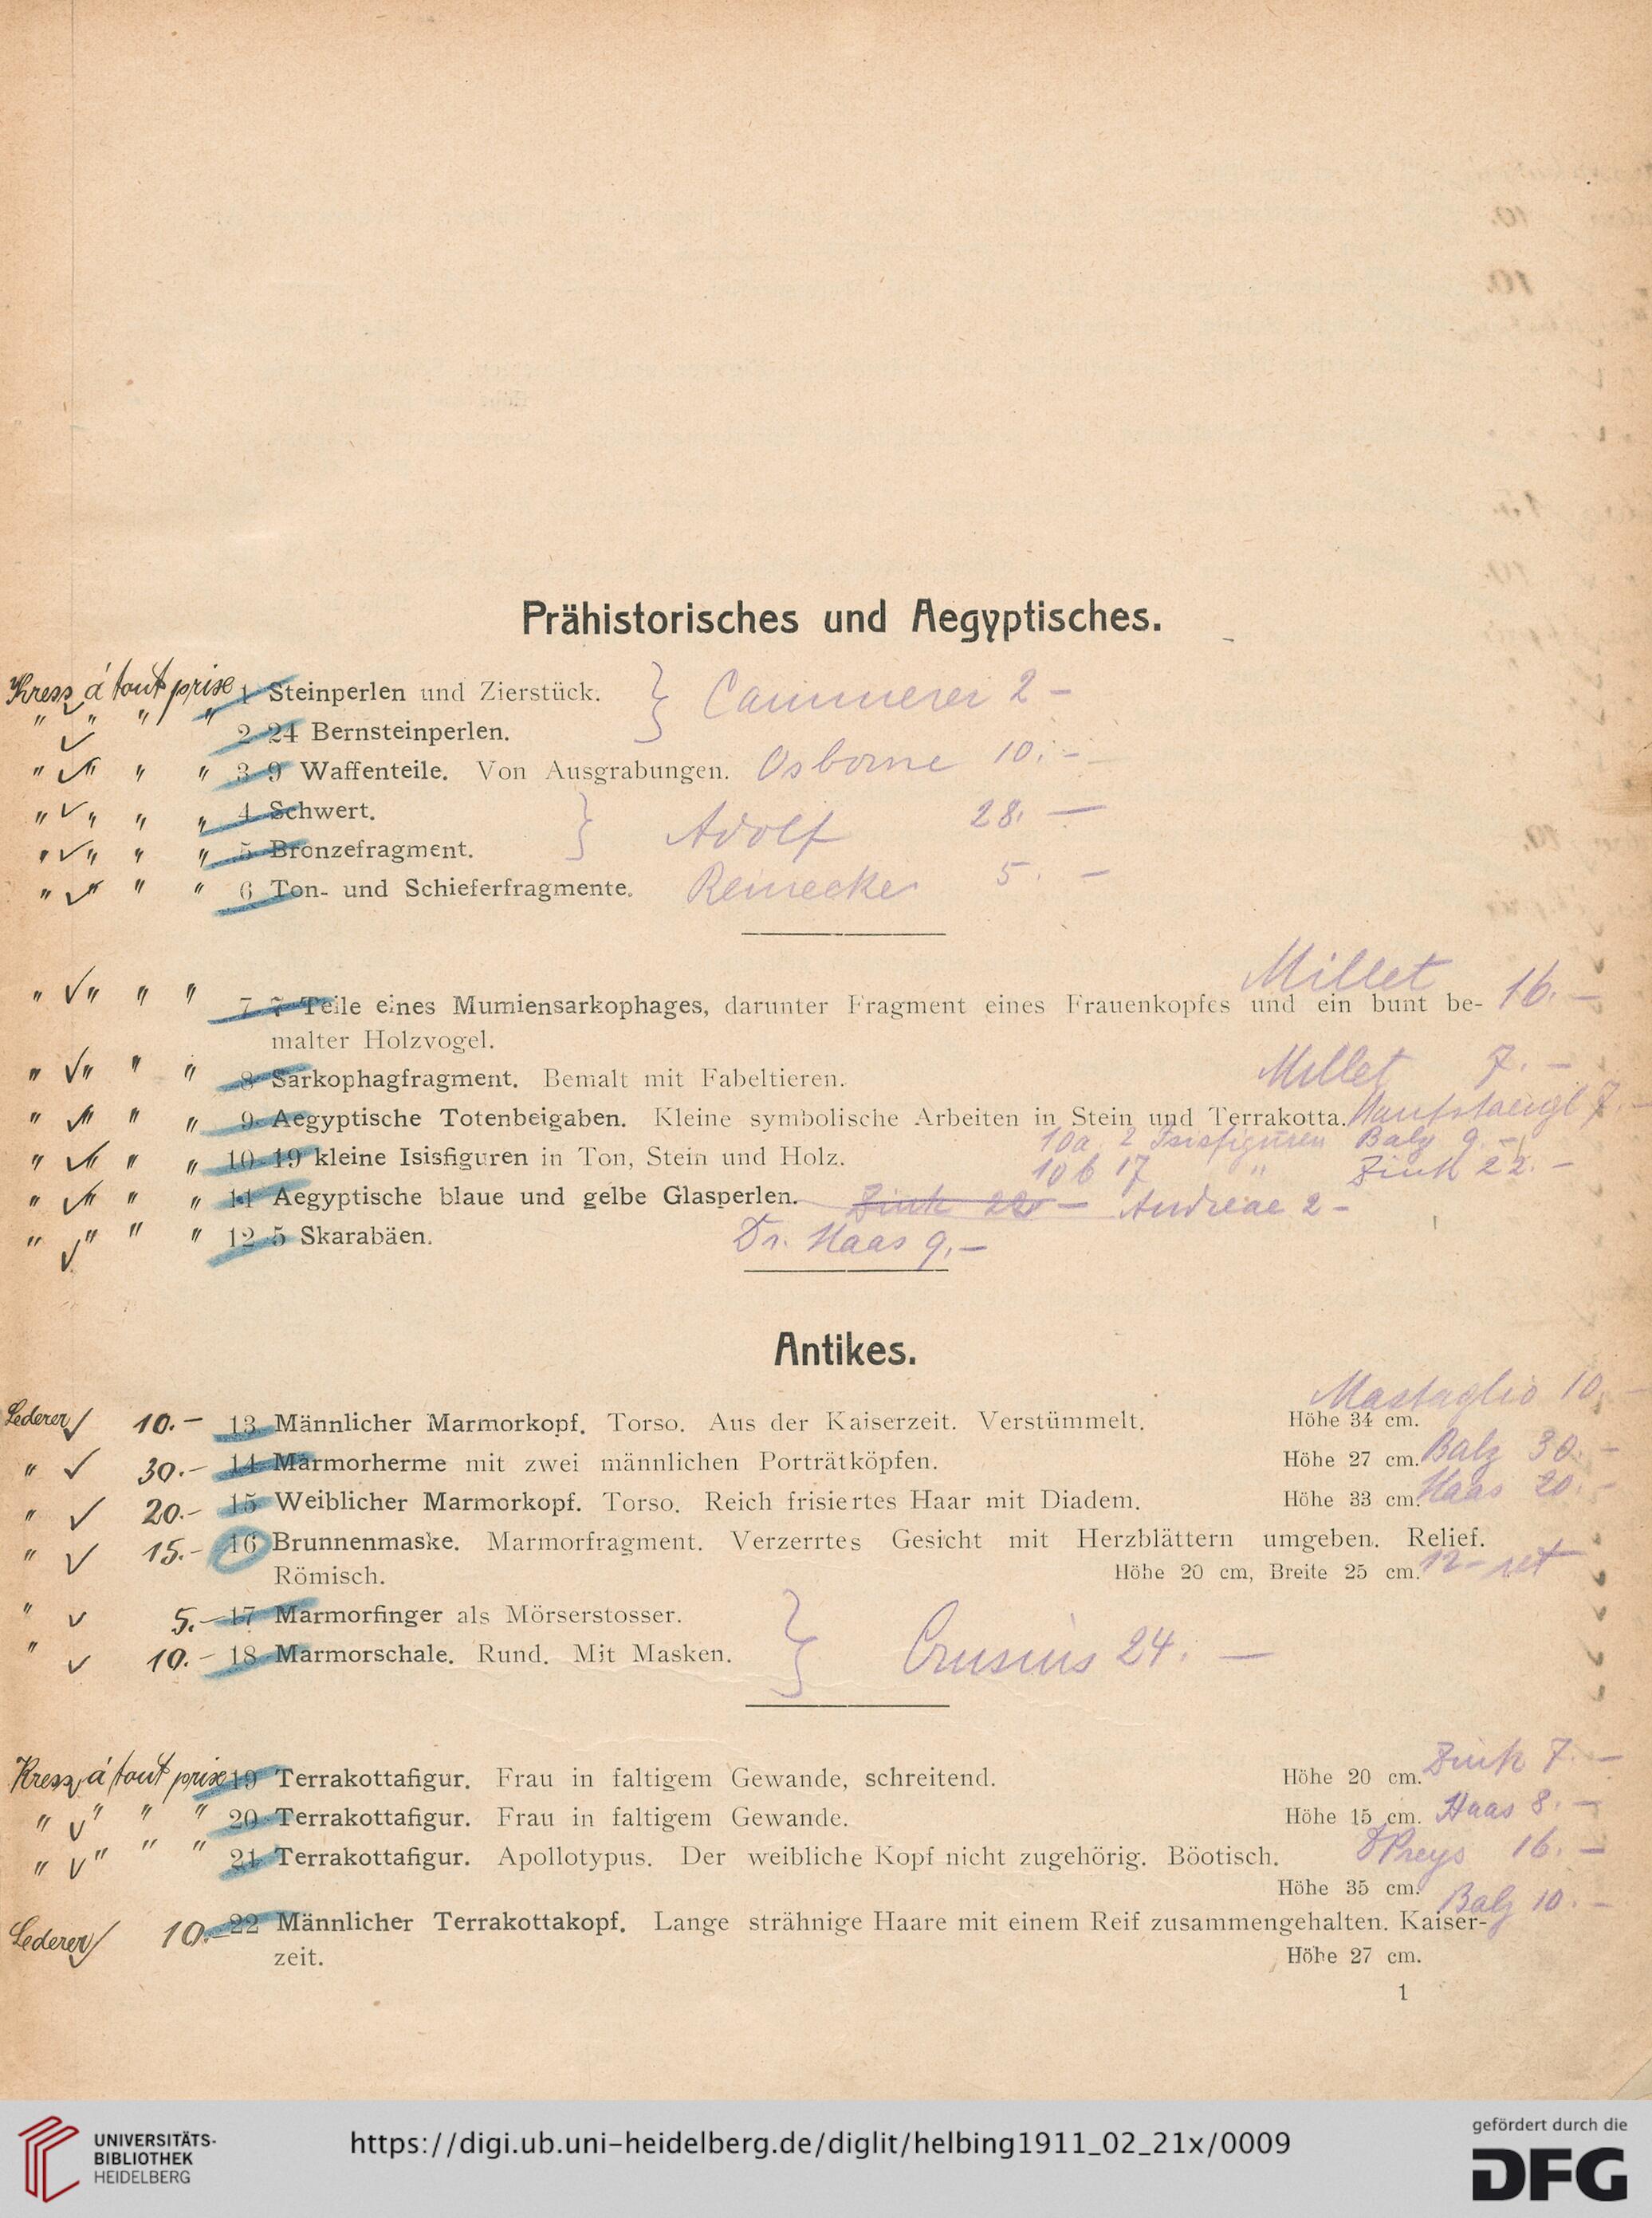 Prähistorisches und Aegyptisches.
Kress à tout prise 1 Steinperlen und Zierstück. } Cammerer 2 –
" " " " 2 24 Bernsteinperlen.
" " " " 3 9 Waffenteile. Von Ausgrabungen. Osborne 10. –
" " " " 4 Schwert. } Adolf 28. –
" " " " 5 Bronzefragment.
" " " " 6 Ton- und Schieferfragmente. Reinecke 5. –
Millet 16. –
" " " " 7 7 Teile eines Mumiensarkophages, darunter Fragment eines Frauenkopfes und ein bunt be-
malter Holzvogel.
" " " " 8 Sarkophagfragment. Bemalt mit Fabeltieren. Millet 7. –
" " " " 9 Aegyptische Totenbeigaben. Kleine symbolische Arbeiten in Stein und Terrakotta. 7. –
10a 2 Isisfiguren Balz 9. –
" " " " 10 19 kleine Isisfiguren in Ton, Stein und Holz. 10b 17 " Zink 22. –
" " " " 11 Aegyptische blaue und gelbe Glasperlen. Zink 22 – Andreae 2 –
" " " " 12 5 Skarabäen. Dr. Haas 9. –
Antikes.
Mastaglio 10. –
Lederer 10. – 13 Männlicher Marmorkopf. Torso. Aus der Kaiserzeit. Verstümmelt. Höhe 34 cm.
" 30. – 14 Marmorherme mit zwei männlichen Porträtköpfen. Höhe 27 cm. Balz 30. –
" 20. – 15 Weiblicher Marmorkopf. Torso. Reich frisiertes Haar mit Diadem. Höhe 33 cm. Haas 20. –
" 15. – 16 Brunnenmaske. Marmorfragment. Verzerrtes Gesicht mit Herzblättern umgeben. Relief.
Römisch. Höhe 20 cm, Breite 25 cm. 12 – ret
" 5. – 17 Marmorfinger als Mörserstosser. } Crusius 24. –
" 10. – 18 Marmorschale. Rund. Mit Masken.
Kress à tout prise 19 Terrakottafigur. Frau in faltigem Gewande, schreitend. Höhe 20 cm. Zink 7. –
" " " " 20 Terrakottafigur. Frau in faltigem Gewande. Höhe 15 cm. Haas 8. –
" " " " 21 Terrakottafigur. Apollotypus. Der weibliche Kopf nicht zugehörig. Böotisch. Preys 16. –
Höhe 35 cm.
Balz 10. –
Lederer 10. – 22 Männlicher Terrakottakopf. Lange strähnige Haare mit einem Reif zusammengehalten. Kaiser-
zeit. Höhe 27 cm.
1
UNIVERSITÄTS-
BIBLIOTHEK
HEIDELBERG
https://digi.ub.uni-heidelberg.de/diglit/helbing1911_02_21x/0009
gefördert durch die
DFG